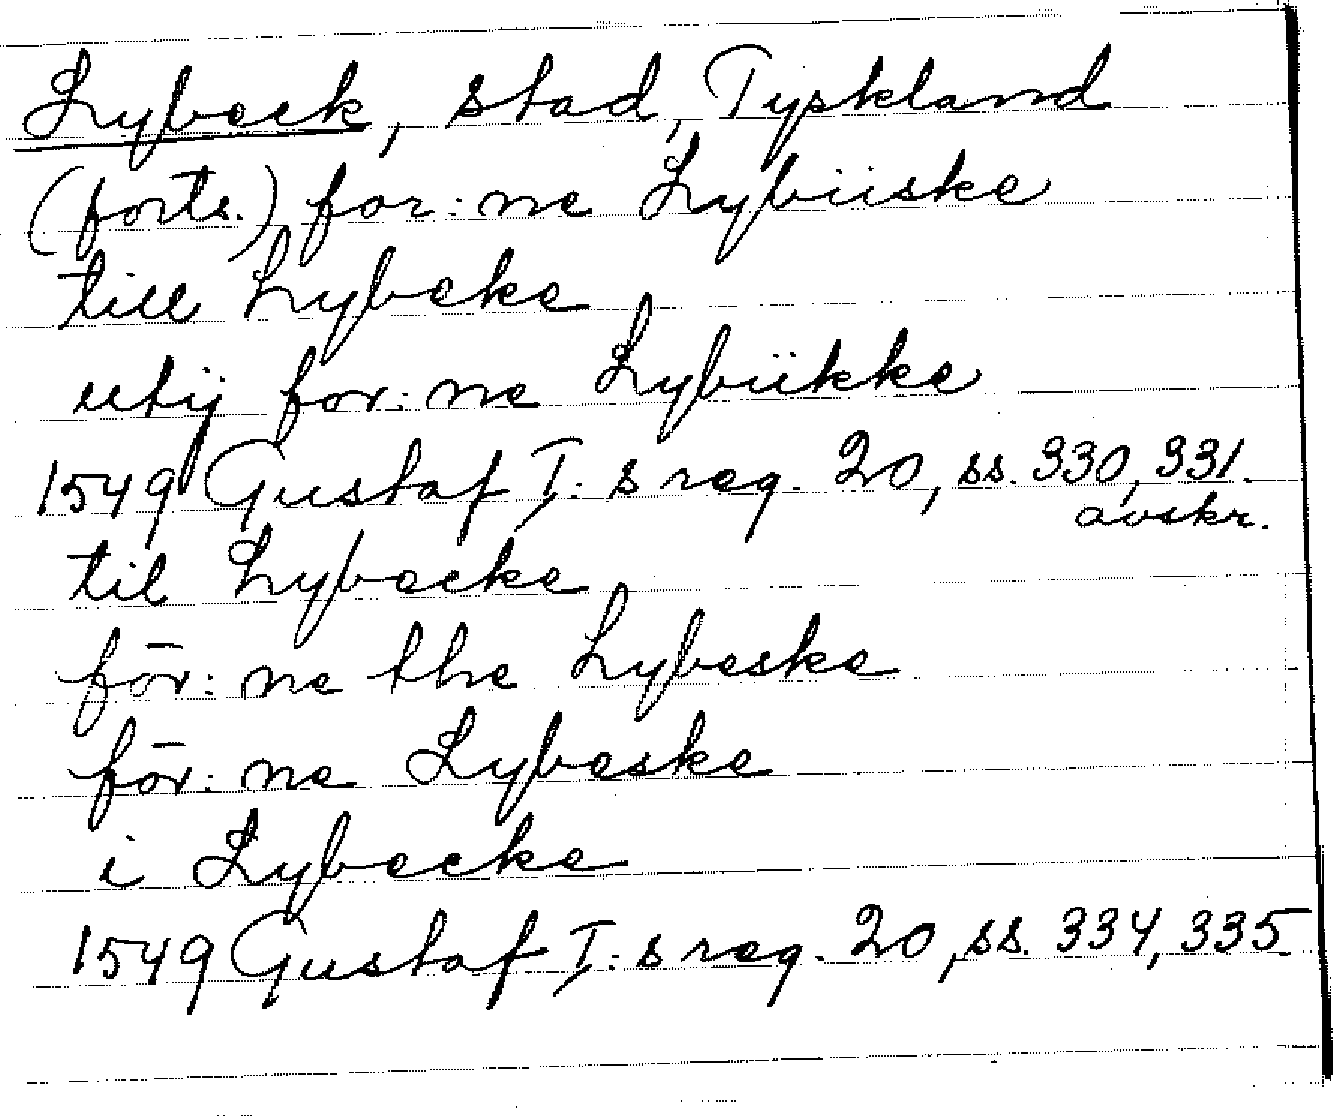 Lybeck, stad, Tyskland
(forts.) for:ne Lybüske
till Lybeke
utij for:ne Lybükke
1549 Gustaf I:s reg. 20, ss. 330, 331.
avskr.
til Lybecke
för:ne the Lybeske
för:ne Lybeske
i Lybecke
1549 Gustaf I:s reg. 20, ss. 334, 335